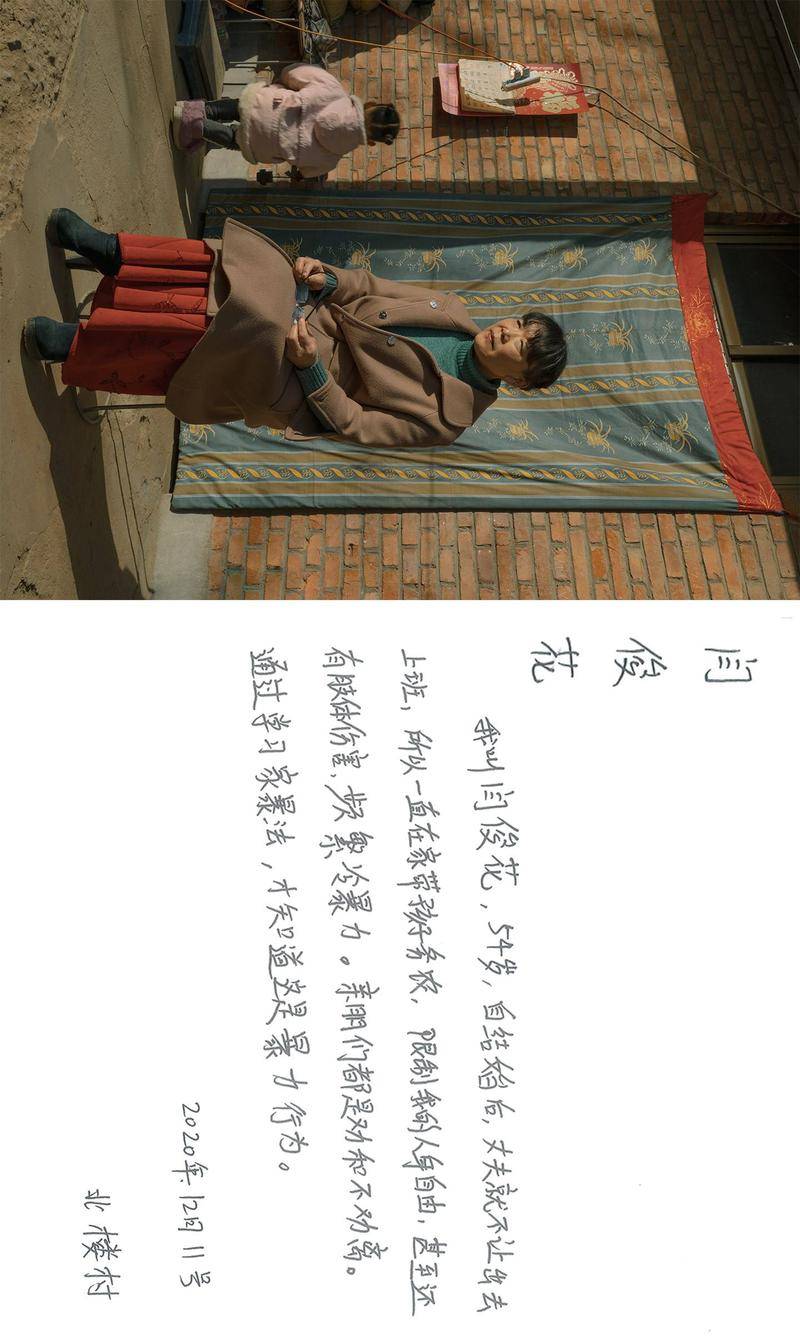 闫俊花
我叫闫俊花，54岁，自结婚后，丈夫就不让出去
上班，所以一直在家带孩子务农，限制我的人身自由，甚至还
有肢体伤害，频繁冷暴力。亲朋们都是劝和不劝离。
通过学习家暴法，才知道这是暴力行为。
2020年12月11号
北楼村